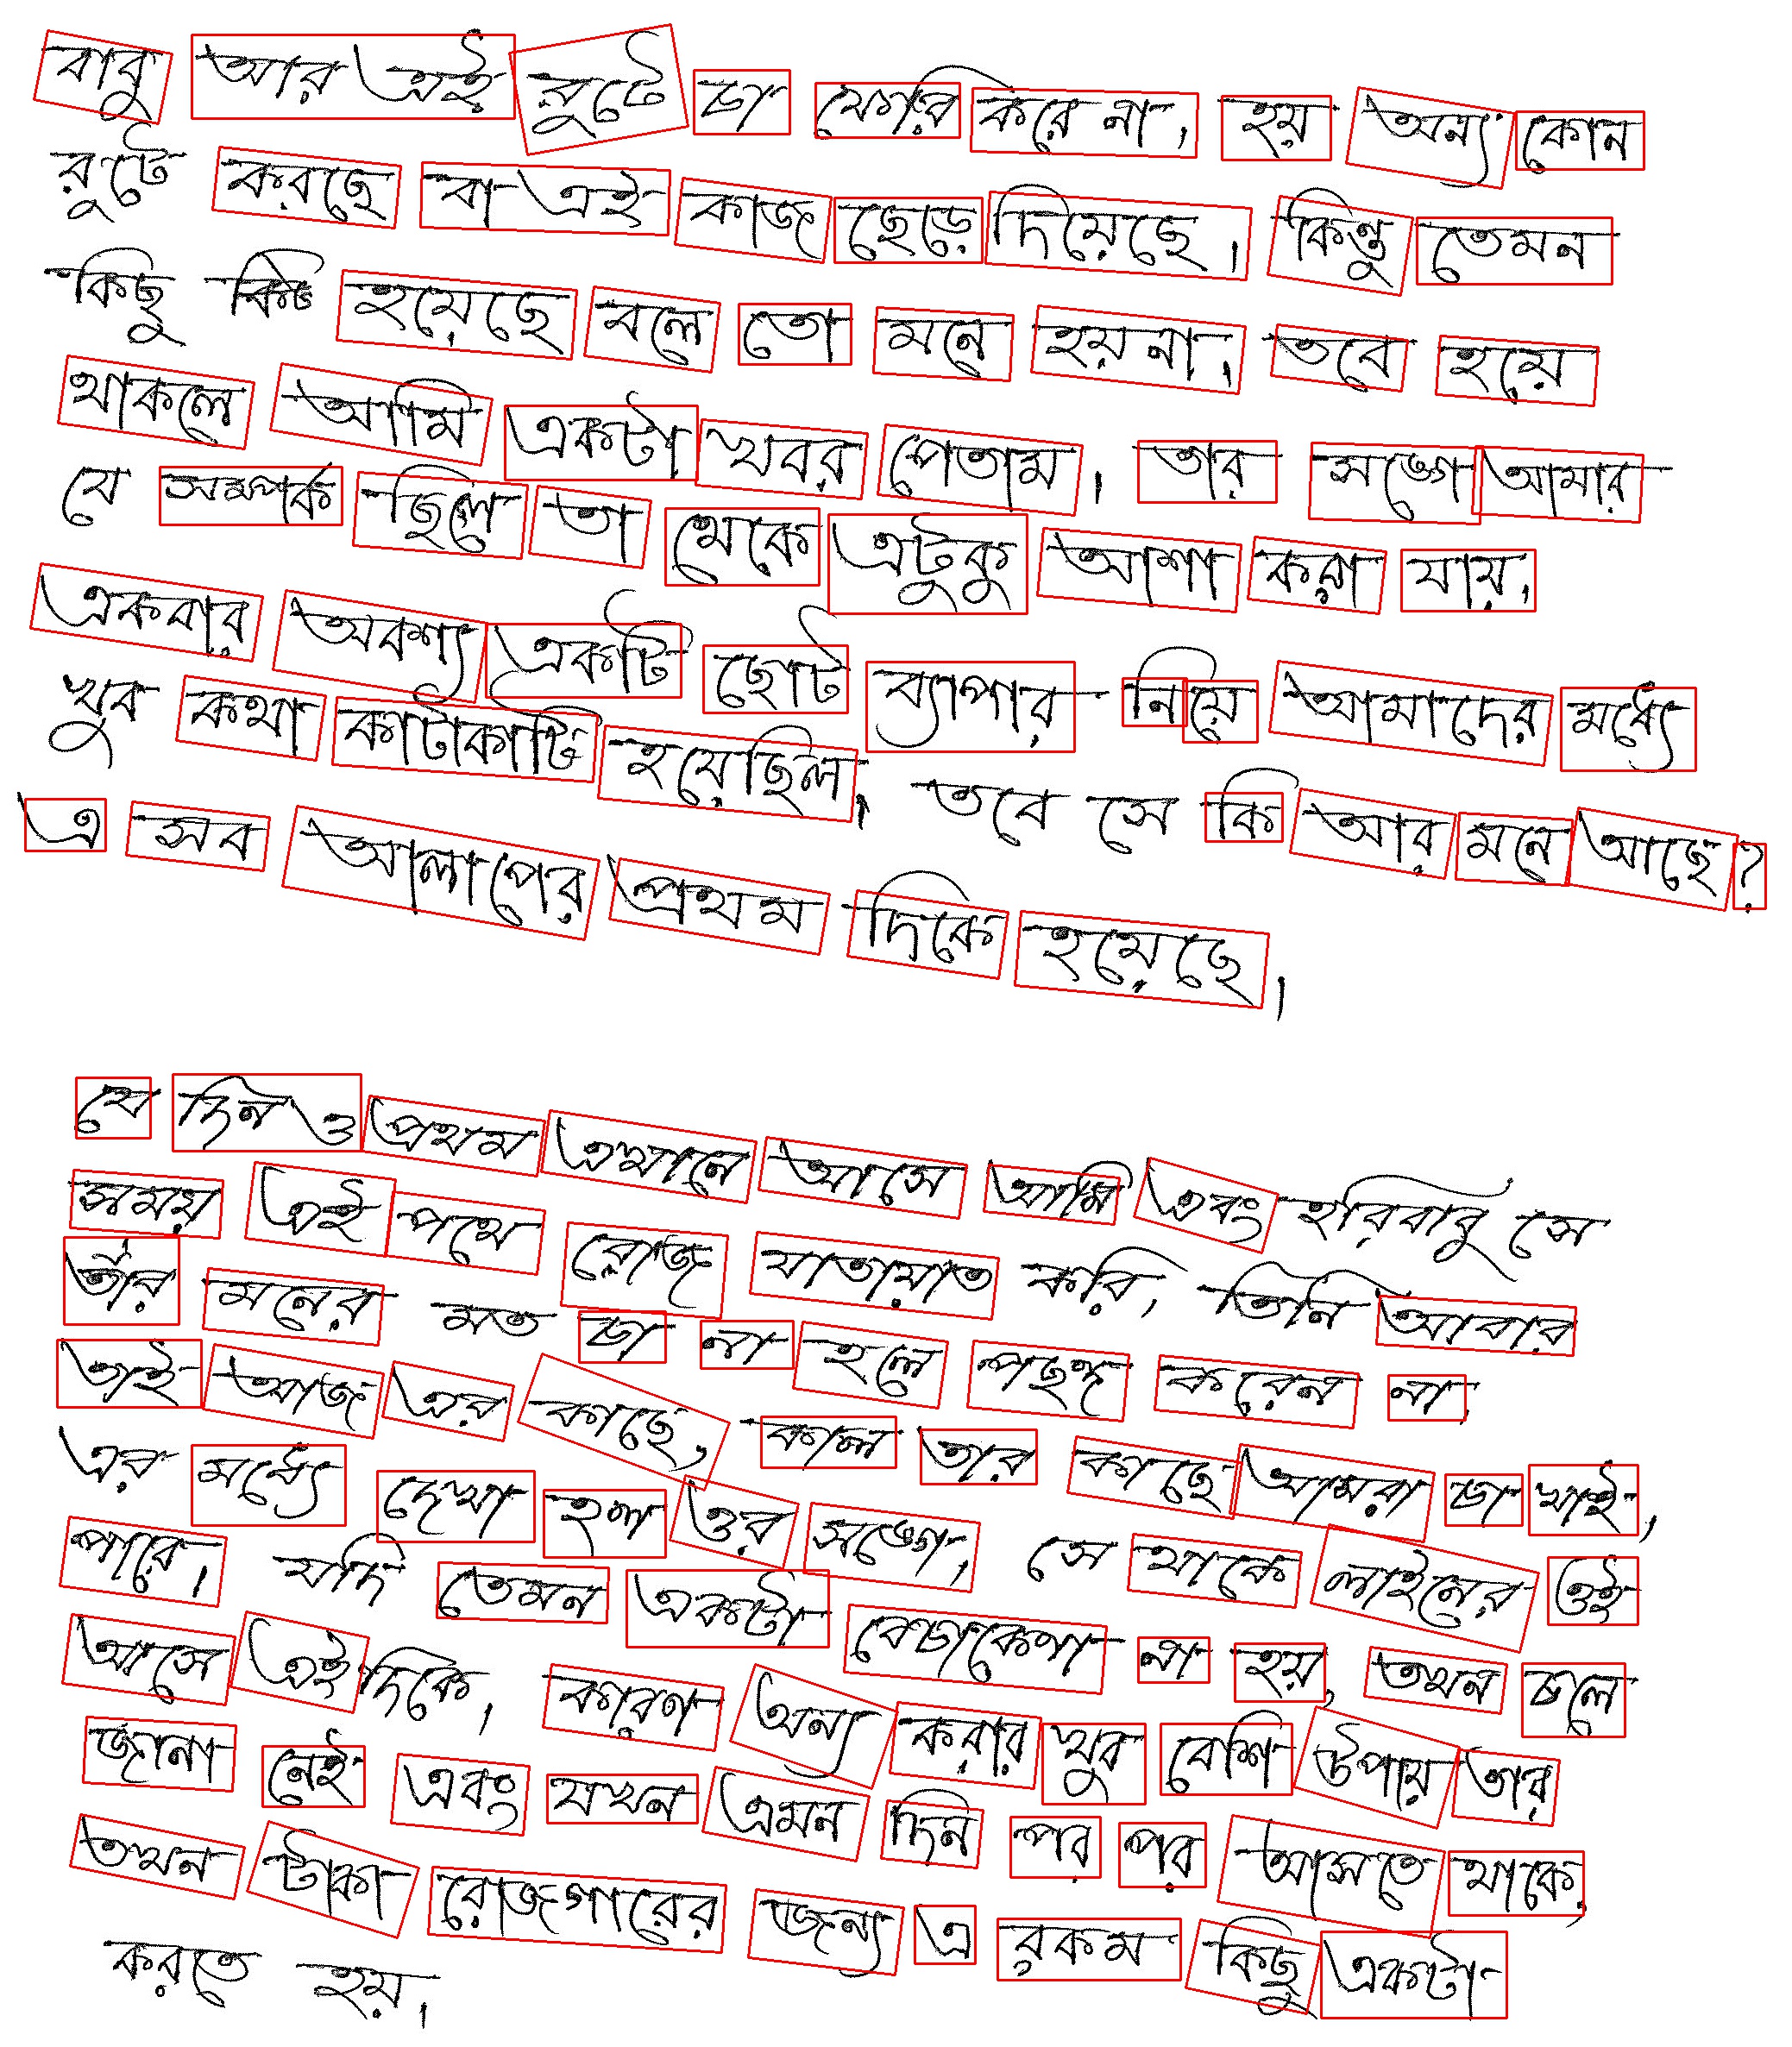 বাবু আর এই রুটে চা ফেরি করে না, হয় অন্য কোন
রুটে করছে বা এই কাজ ছেড়ে দিয়েছে। কিন্তু তেমন
কিছু হয়েছে বলে তো মনে হয়না। তবে হয়ে
থাকলে আমি একটা খবর পেতাম। তার সঙ্গে আমার
যে সম্পর্ক ছিলে তা থেকে এটুকু আশা করা যায়।
একবার অবশ্য একটি ছোট ব্যাপার নিয়ে আমাদের মধ্যে
খুব কথা কাটাকাটি হয়েছিল। তবে সে কি আর মনে আছে?
এ সব আলাপের প্রথম দিকে হয়েছে।
যে দিন ও প্রথম এখানে আসে আমি এবং হরিবাবু সে
সময় এই পথে রোজ যাতায়াত করি, তিনি আবার
তাঁর মনের মত চা না হলে পছন্দ করেন না,
তাই আজ এর কাছে, কাল তার কাছে আমরা চা খাই,
এর মধ্যে দেখা হল ওর সঙ্গে, সে থাকে লাইনের ওই
পারে। যদি তেমন একটা বেচাকেনা না হয়, তখন চলে
আসে এই দিকে, কারণ অন্য করার খুব বেশি উপায় তার
জানা নেই এবং যখন এমন দিন পর পর আসতে থাকে,
তখন টাকা রোজগারের জন্য এ রকম কিছু একটা
করতে হয়।